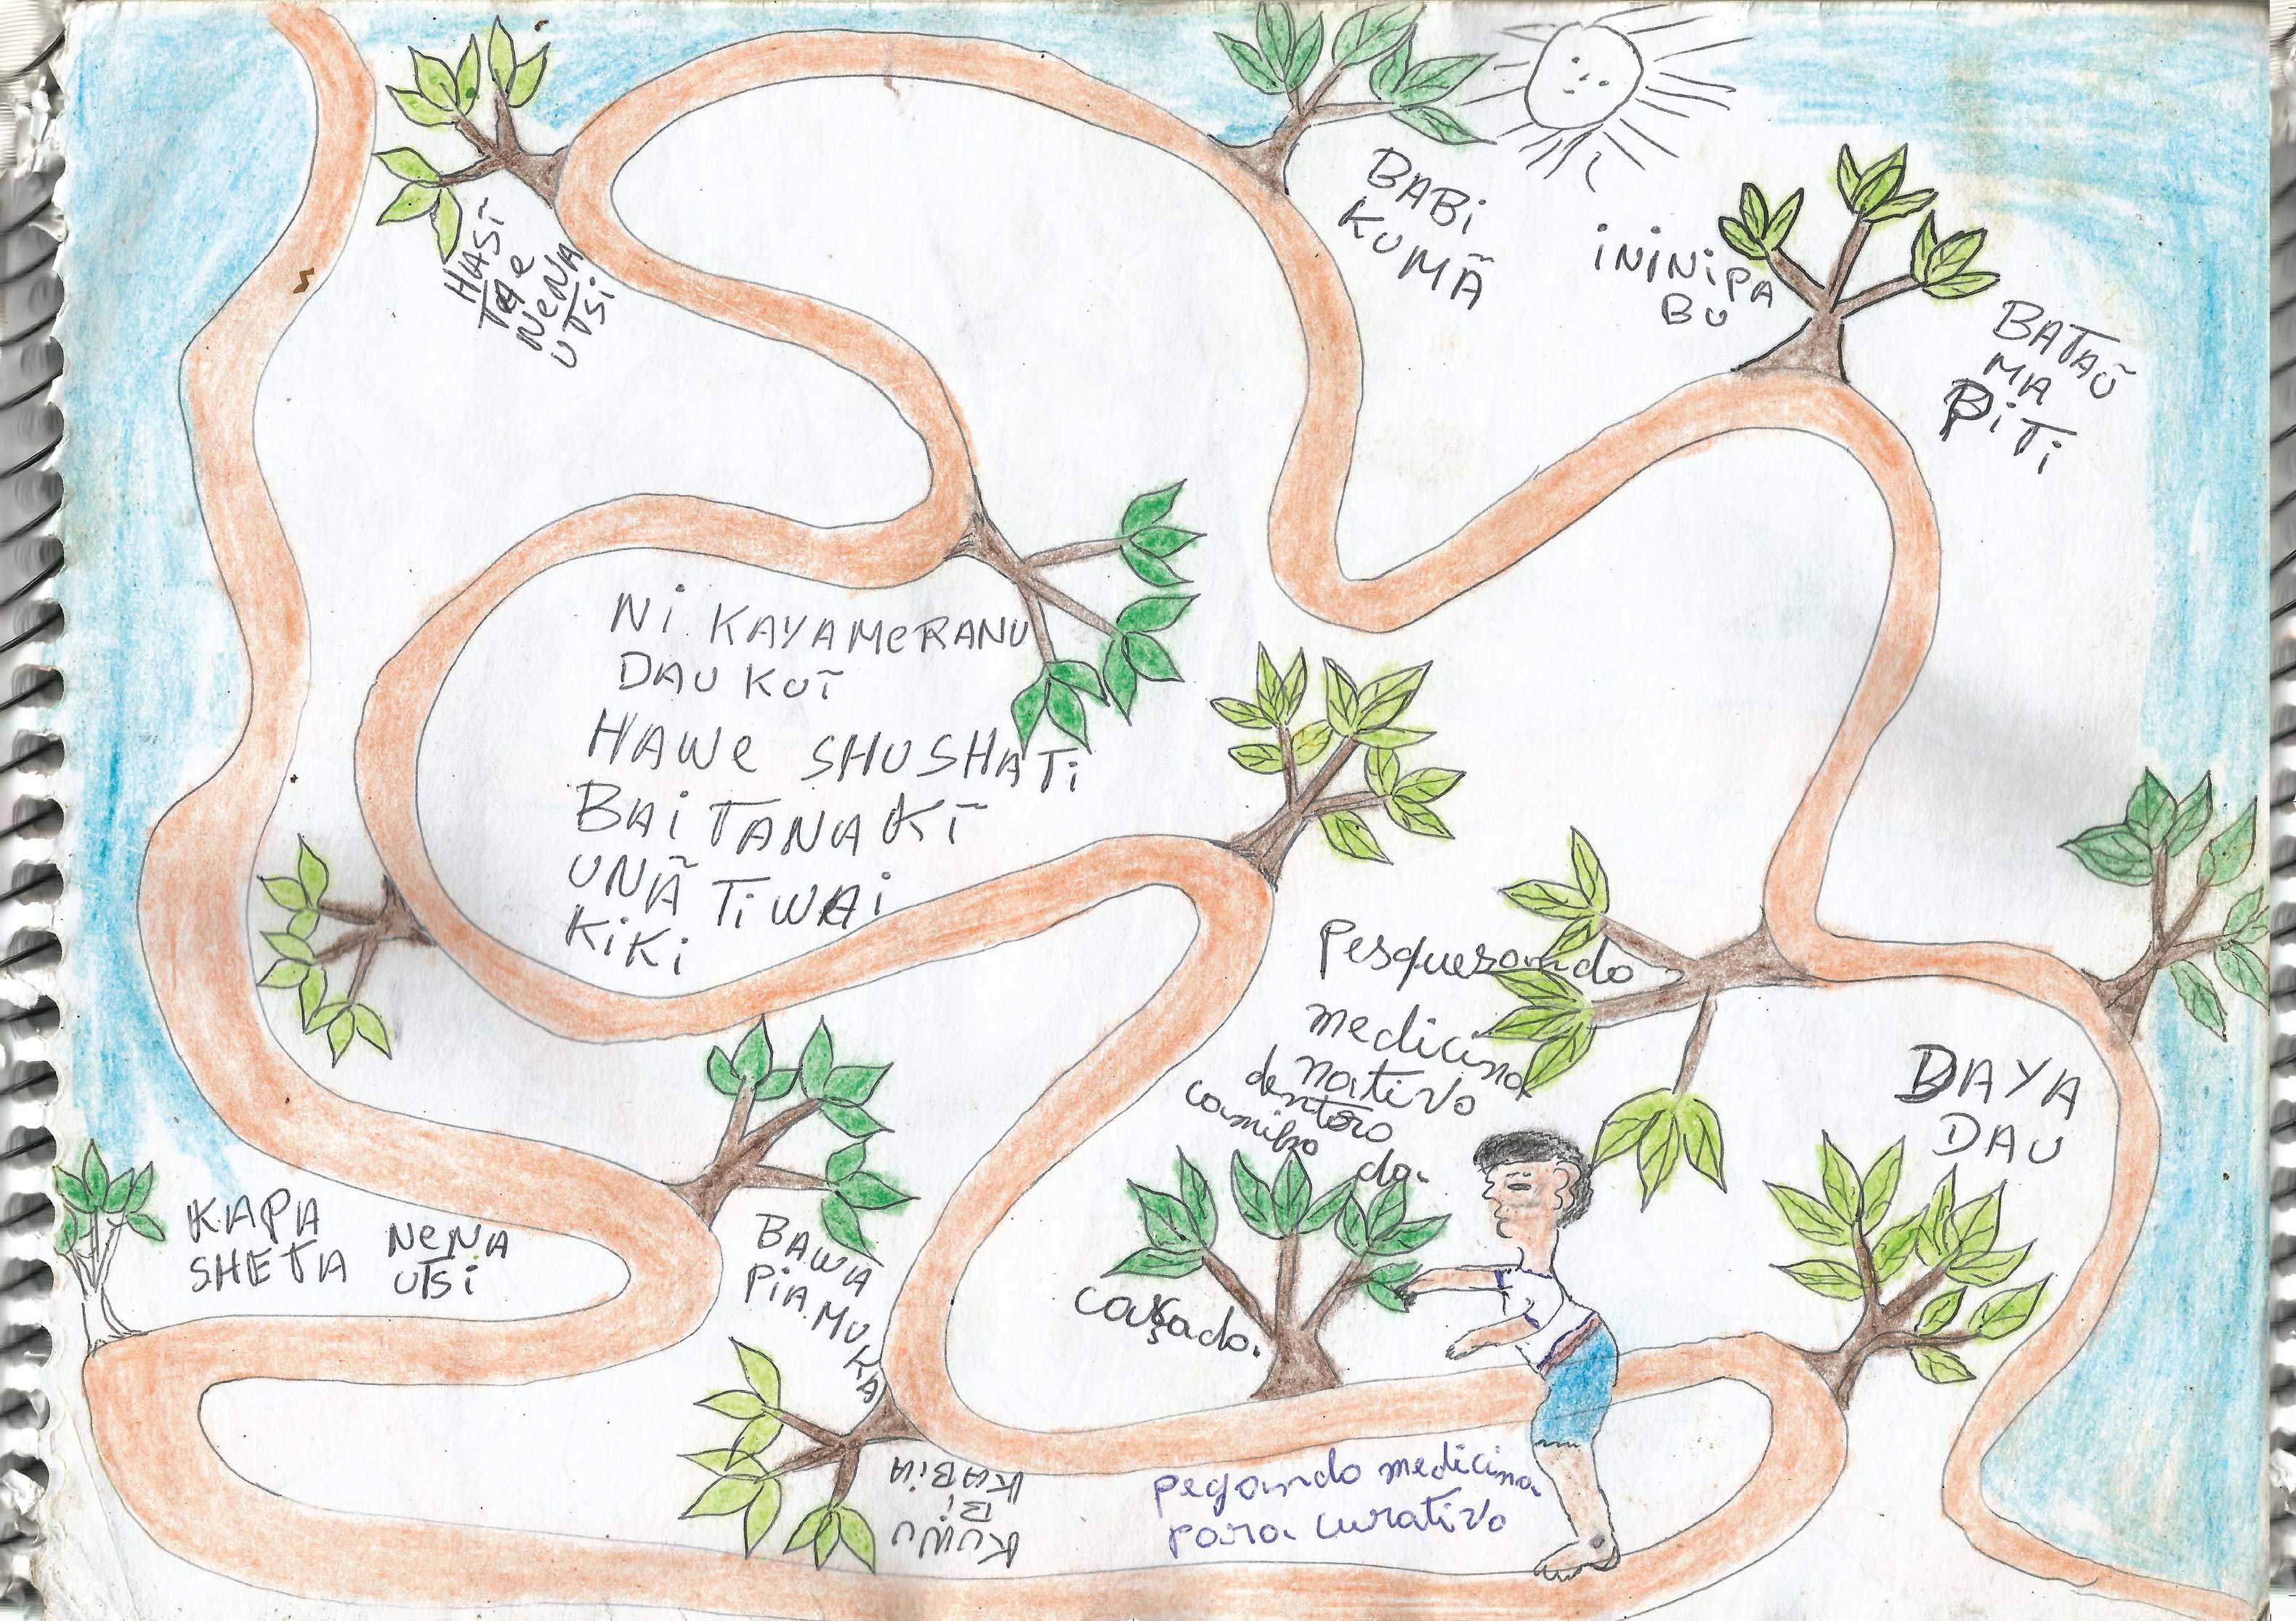 HASĪ
TAE
NENA
UTSI
BABI
KUMÃ
ININIPA
BU
BATAŨ
MA
PITI
NI KAYAMERANU
DAU KUĪ
HAWE SHUSHATI
BAI TANAKĪ
UNÃ TIWAI
KIKI
Pesquesando
medicina
nativo
dentoro
camiho da.
caçado.
DAYA
DAU
KAPA
SHETA
NENA
UTSI
BAWA
PIA MUKA
KUWU
BI
KABIA
pegando medicina
para curativo